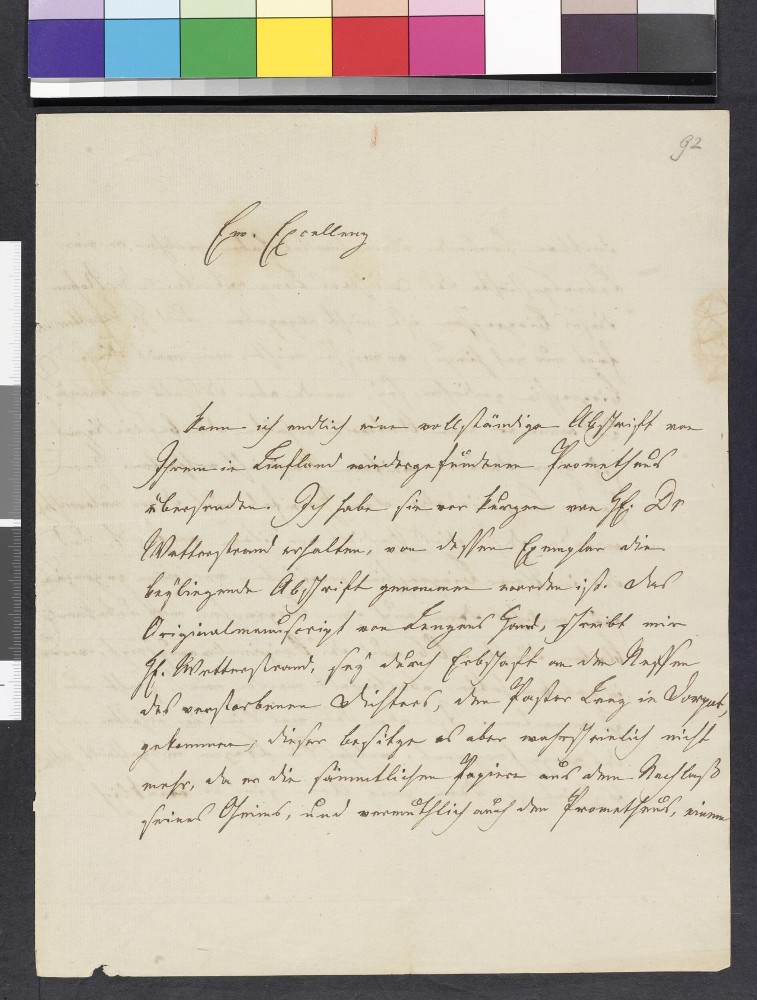 92
Ew. Excellenz
kann ich endlich eine vollständige Abschrift von
Ihrem in Liefland wiedergefundenen Prometheus
übersenden. Ich habe sie vor kurzem von Hr. Dr
Wetterstrand erhalten, von dessen Exemplar die
beyliegende Abschrift genommen worden ist. Das
Originalmanuscript von Lenzens Hand, schreibt mir
Hr. Wetterstrand, sey durch Erbschaft an den Neffen
des verstorbenen Dichters, den Pastor Lenz in Dorpat,
gekommen; dieser besitze es aber wahrscheinlich nicht
mehr, da er die sämmtlichen Papiere aus dem Nachlaß
seines Oheims, und vermuthlich auch den Prometheus, einem